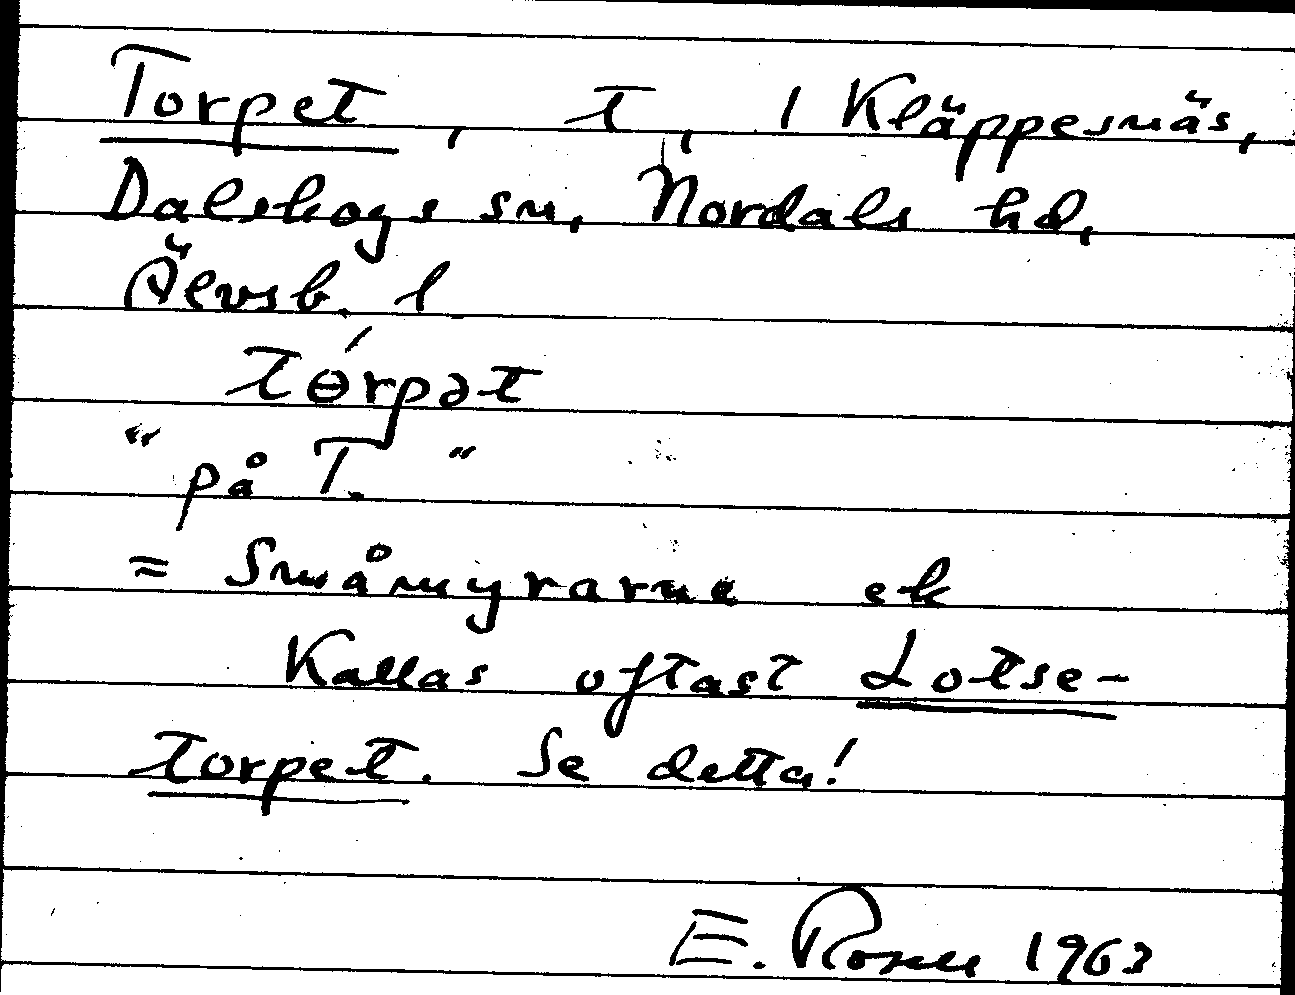 Torpet, t, 1 Kläppesnäs,
Dalskogs sn, Nordals hd,
Älvsb. l
tɵ́rpət
"på T."
= Småmyrarne ek
Kallas oftast Lotse-
torpet. Se detta!
E. Rosell 1963